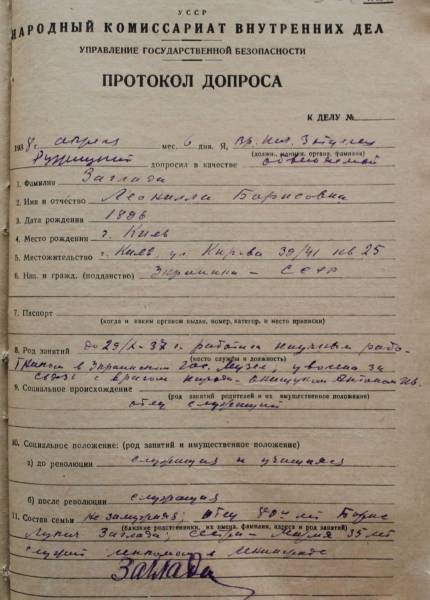 УССР
НАРОДНЫЙ КОМИССАРИАТ ВНУТРЕННИХ ДЕЛ
УПРАВЛЕНИЕ ГОСУДАРСТВЕННОЙ БЕЗОПАСНОСТИ
ПРОТОКОЛ ДОПРОСА
К ДЕЛУ №
1938 г. апреля мес. 6 дня. Я,
(должн., наимен. органа, фамилия)
допросил в качестве обвиняемой
1. Фамилия Заглада
2. Имя и отчество Леонилла Борисовна
3. Дата рождения 1896
4. Место рождения г. Киев
5. Местожительство г. Киев, ул. Кирова 39/41 кв 25
6. Нац. и гражд. (подданство) Украинка – СССР
7. Паспорт
(когда и каким органом выдан, номер, категор. и место прописки)
8. Род занятий до 29/X-37 г. работала научным рабо-
(место службы и должность)
тником в Украинском Гос. Музее, уволена за
связь с врагом народа Онищуком Антоном Ив.
9. Социальное происхождение
(род занятий родителей и их имущественное положение)
отец служащий
10. Социальное положение: (род занятий и имущественное положение)
а) до революции служащая и учащаяся
б) после революции служащая
11. Состав семьи Не замужняя: Отец 70 лет Борис
(близкие родственники, их имена, фамилии, адреса и род занятий)
Лукич Заглада: сестра Мария 35 лет
в Ленинграде
Заглада